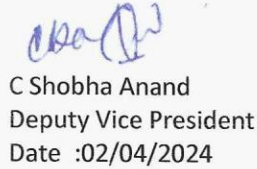 C Shobha Anand
Deputy Vice President
Date  :02/04/2024